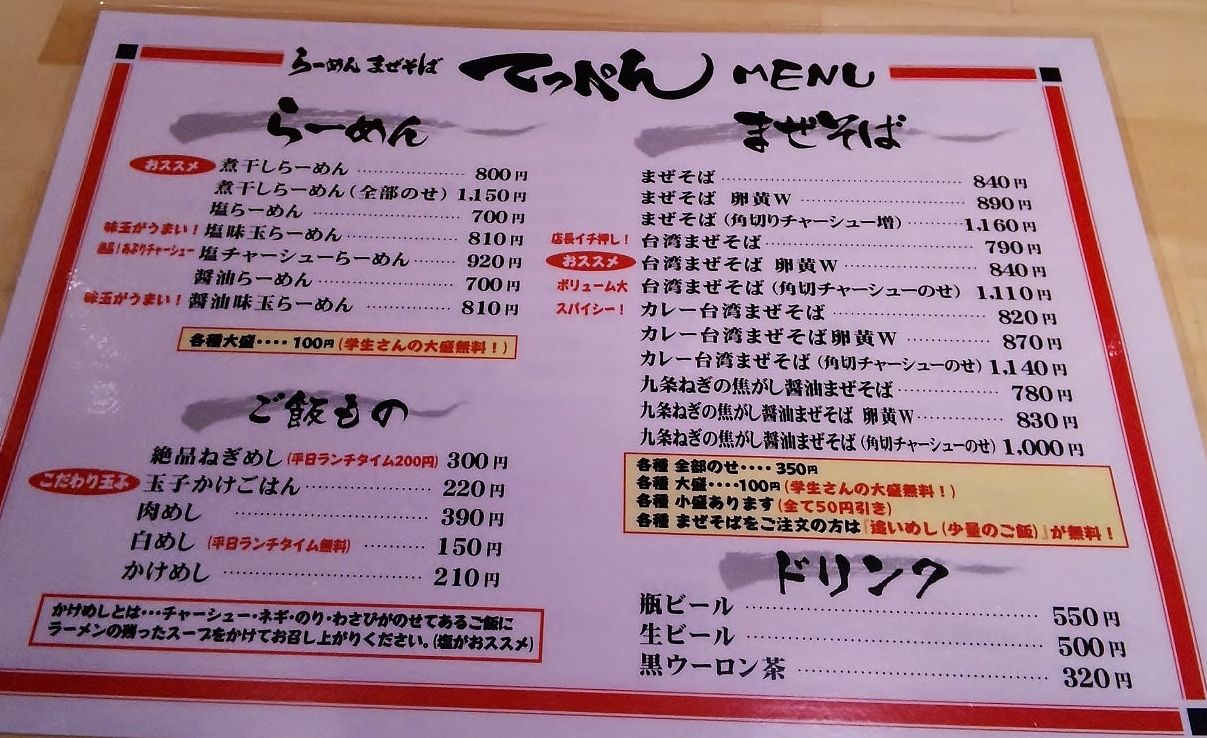 らーめん まぜそば てっぺん MENU
らーめん
おススメ 煮干しらーめん 800円
煮干しらーめん(全部のせ) 1,150円
塩らーめん 700円
味玉がうまい! 塩味玉らーめん 810円
塩チャーシューらーめん 920円
醤油らーめん 700円
味玉がうまい! 醤油味玉らーめん 810円
各種大盛････100円(学生さんの大盛無料!)
ご飯もの
絶品ねぎめし(平日ランチタイム200円) 300円
こだわり玉子 玉子かけごはん 220円
肉めし 390円
白めし (平日ランチタイム無料) 150円
かけめし 210円
かけめしとは･･･チャーシュー・ネギ・のり・わさびがのせてあるご飯に
ラーメンの残ったスープをかけてお召し上がりください。(塩がおススメ)
まぜそば
まぜそば 840円
まぜそば 卵黄W 890円
まぜそば(角切りチャーシュー増) 1,160円
店長イチ押し! 台湾まぜそば 790円
おススメ 台湾まぜそば 卵黄W 840円
ボリューム大 台湾まぜそば(角切チャーシューのせ) 1,110円
スパイシー! カレー台湾まぜそば 820円
カレー台湾まぜそば卵黄W 870円
カレー台湾まぜそば(角切チャーシューのせ) 1,140円
九条ねぎの焦がし醤油まぜそば 780円
九条ねぎの焦がし醤油まぜそば 卵黄W 830円
九条ねぎの焦がし醤油まぜそば(角切チャーシューのせ) 1,000円
各種 全部のせ････350円
各種 大盛････100円(学生さんの大盛無料!)
各種 小盛あります(全て50円引き)
各種 まぜそばをご注文の方は『追いめし(少量のご飯)』が無料!
ドリンク
瓶ビール 550円
生ビール 500円
黒ウーロン茶 320円